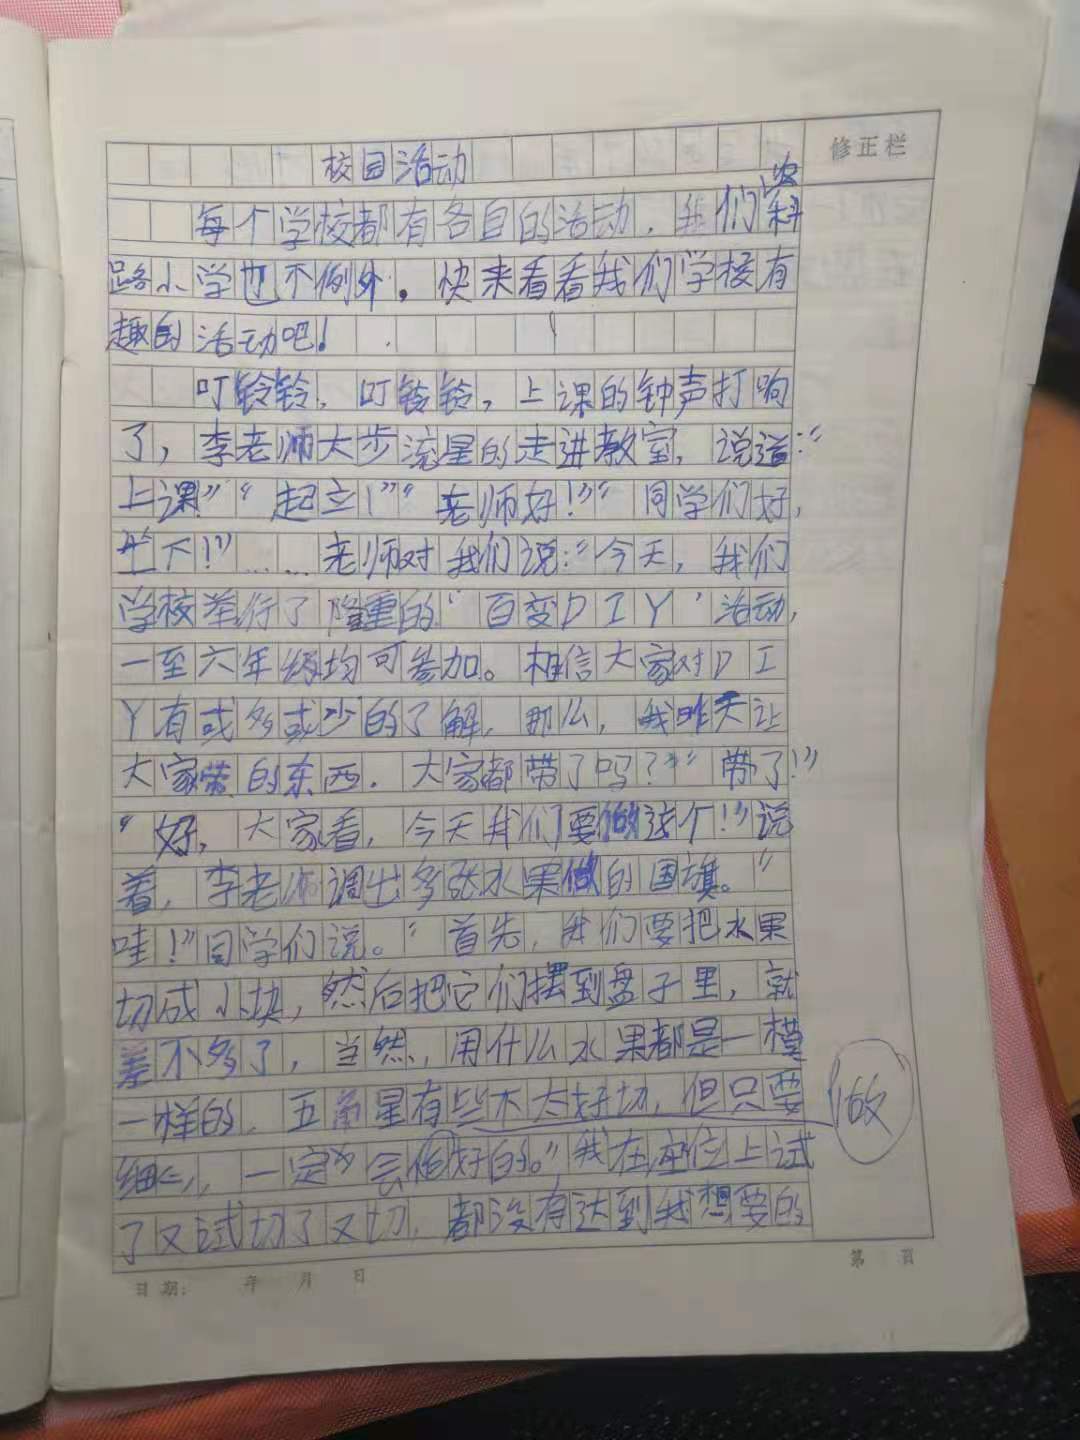 修正栏
校园活动
每个学校都有各自的活动，我们农科
路小学也不例外。快来看看我们学校有
趣的活动吧！
叮铃铃，叮铃铃，上课的钟声打响
了，李老师大步流星的走进教室，说道：“
上课”“起立！”“老师好！”“同学们好，
坐下！”……老师对我们说：“今天，我们
学校举行了隆重的‘百变DIY’活动，
一至六年级均可参加。相信大家对DI
Y有或多或少的了解，那么，我昨天让
大家带的东西，大家都带了吗？”“带了！”
“好，大家看，今天我们要做这个！”说
着，李老师调出多张水果做的国旗。“
哇！”同学们说。“首先，我们要把水果
切成小块，然后把它们摆到盘子里，就
差不多了，当然，用什么水果都是一模
一样的，五角星有些不太好切，但只要
细心，一定会做好的。”我在座位上试
了又试切了又切，都没有达到我想要的
做
日期： 年 月 日
第 页